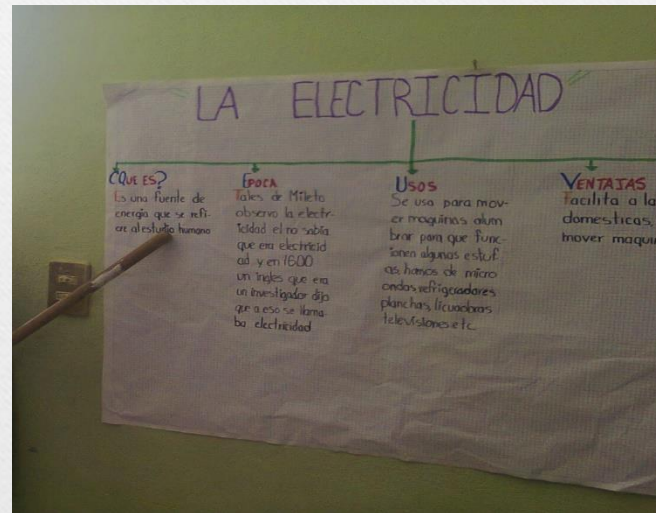 LA ELECTRICIDAD
¿QUE ES?
Es una fuente de
energia que se refi-
ere al estudio humano
EPOCA
Tales de Mileto
observo la electr-
icidad el no sabia
que era electricid
ad y en 1600
un ingles que era
un investigador dijo
que a eso se llama
ba electricidad
USOS
Se usa para mov-
er maquinas alum
brar para que func-
ionen algunas estuf.
as, hornos de micro
ondas refrigeradores
planchas, licuadoras
televisiones etc.
VENTAJAS
Facilita a la
domesticas,
mover maqui